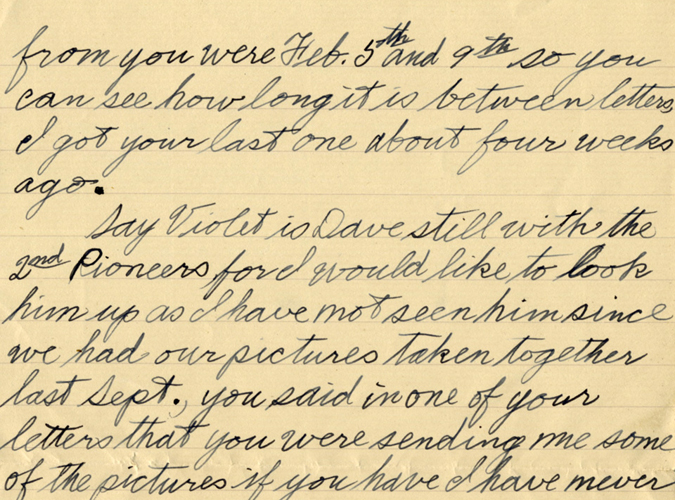 from you were Feb. 5th and 9th so you
can see how long it is between letters,
I got your last one about four weeks
ago.
Say Violet is Dave still with the
2nd Pioneers for I would like to look
him up as I have not seen him since
we had our pictures taken together
last Sept., you said in one of your
letters that you were sending me some
of the pictures if you have I have never